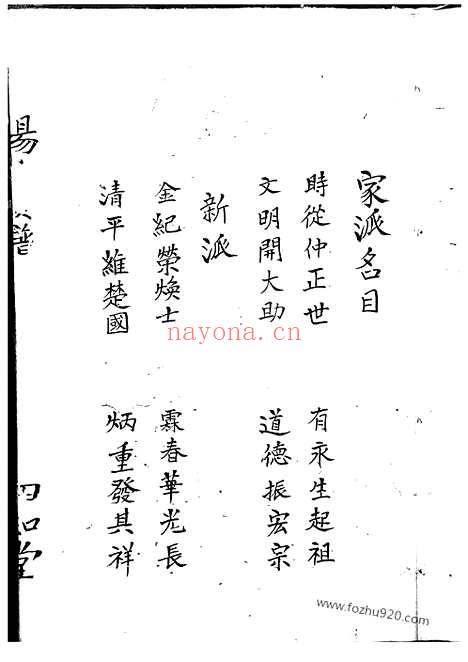 家派名目
時從仲正世　有永生起祖
文明開大助　道德振宏宗
新派
金紀榮煥士　霖春華光長
清平維楚國　炳重發其祥
譜
堂
nayona.cn
www.fozhu920.com